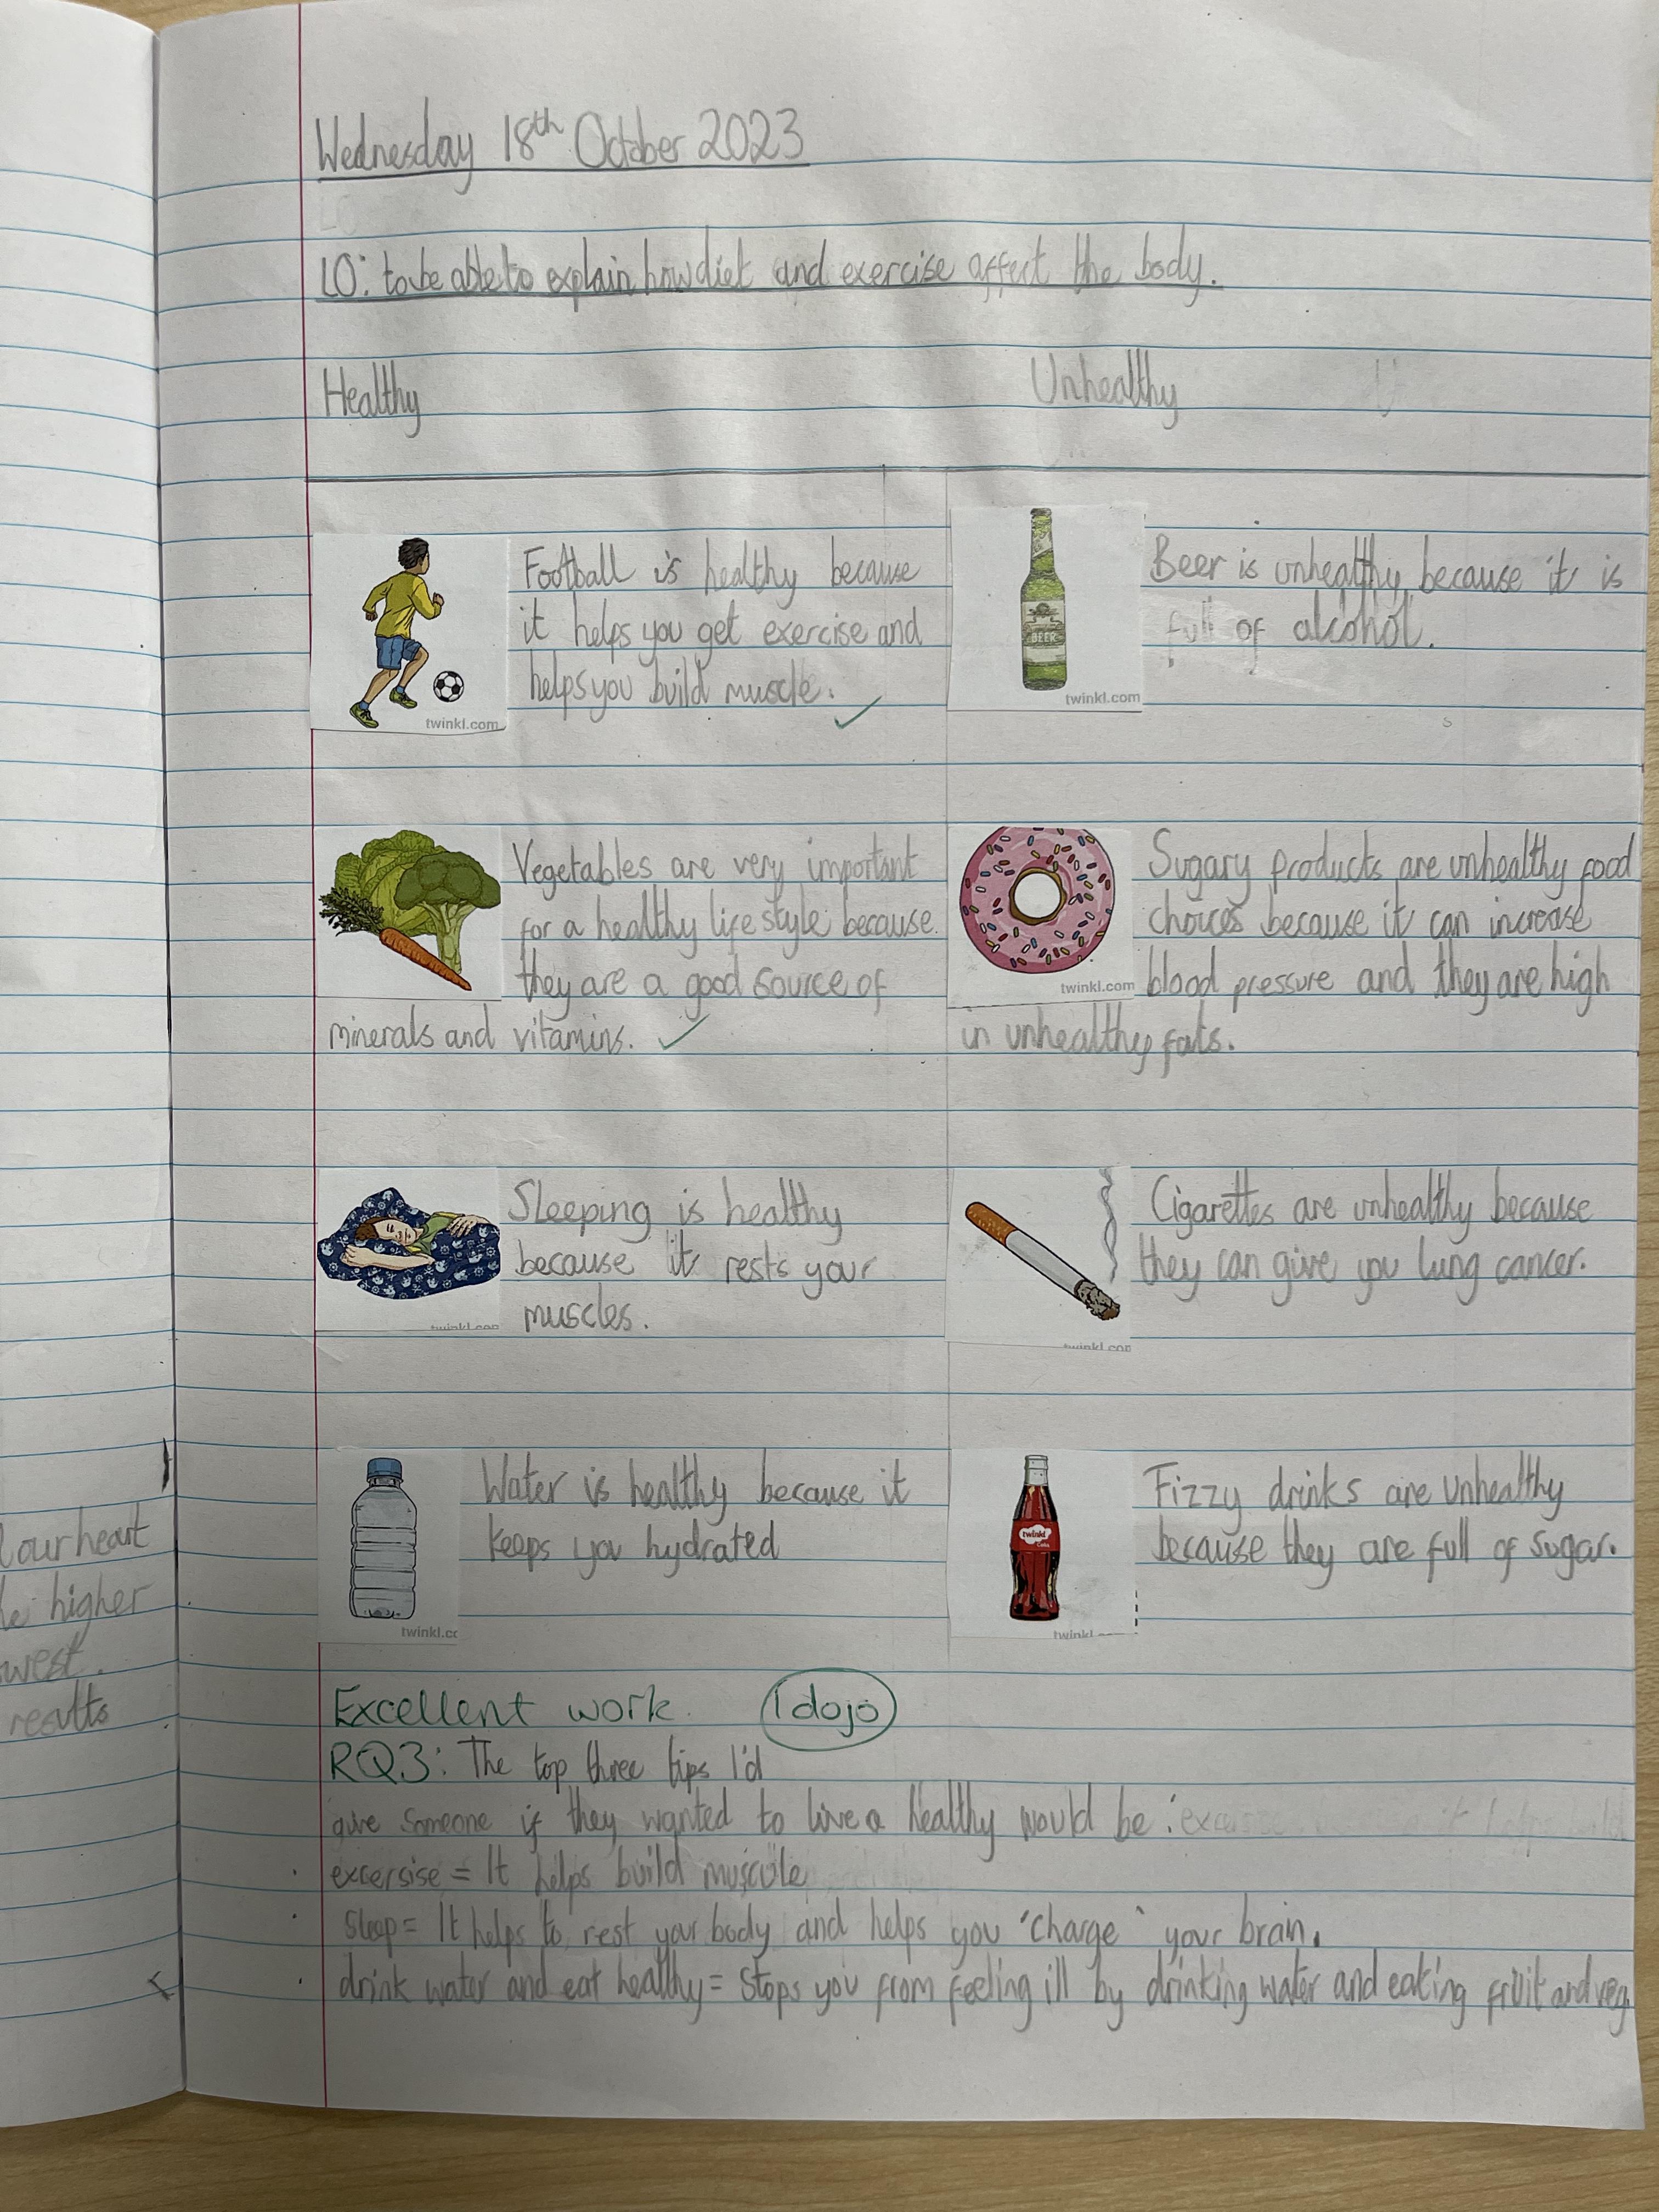 Wednesday 18th October 2023
LO
LO: to be able to explain how diet and exercise affect the body.
Healthy
Unhealthy
Football is healthy because
it helps you get exercise and
helps you build muscle.
twinkl.com
BEER
Beer is unhealthy because it is
full of alcohol.
twinkl.com
Vegetables are very important
for a healthy life style because
they are a good source of
minerals and vitamins.
Sugary products are unhealthy food
choices because it can increase
blood pressure and they are high
twinkl.com
in unhealthy fats.
Sleeping is healthy
because it rests your
muscles.
twinkl.com
Cigarettes are unhealthy because
they can give you lung cancer.
twinkl.com
Water is healthy because it
keeps you hydrated
twinkl.cc
Fizzy drinks are unhealthy
because they are full of sugar.
twinkl
Cola
twinkl
Excellent work. 1 dojo
RQ3: The top three tips I'd
give someone if they wanted to live a healthy would be:
excersise = It helps build muscule
Sleep = It helps to rest your body and helps you 'charge' your brain.
drink water and eat healthy = Stops you from feeling ill by drinking water and eating fruit and veg.
our heart
higher
west.
results